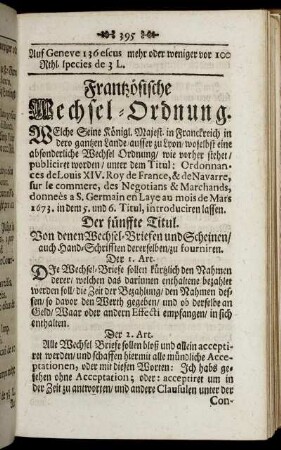 395
Auf Geneve 136 escus mehr oder weniger vor 100
Rthl. species de 3 L.
Frantzösische
Wechsel-Ordnung.
WElche Seine Königl. Majest. in Franckreich in
dero gantzen Lande ausser zu Lyon/ woselbst eine
absonderliche Wechsel Ordnung/ wie vorher stehet/
publiciret worden/ unter dem Titul: Ordonnan-
ces de Louis XIV. Roy de France, & de Navarre,
sur le commerce, des Negotians & Marchands,
donneés a S. Germain en Laye au mois de Mars
1673. in dem 5. und 6. Titul, introduciren lassen.
Der fünffte Titul.
Von denen Wechsel-Briefen und Scheinen/
auch Hand-Schrifften dererselben/ zu fourniren.
Der 1. Art.
DIe Wechsel-Briefe sollen kürtzlich den Nahmen
derer/ welchen das darinnen enthaltene bezahlet
werden soll/ die Zeit der Bezahlung/ den Nahmen des-
sen/ so davor den Werth gegeben/ und ob derselbe an
Geld/ Waar oder andern Effecti empfangen/ in sich
enthalten.
Der 2. Art.
Alle Wechsel Briefe sollen bloß und allein accepti-
ret werden/ und schaffen hiermit alle mündliche Acce-
ptationen, oder mit diesen Worten: Ich habs ge-
sehen ohne Acceptation; oder: acceptiret um in
der Zeit zu antworten/ und andere Clausulen unter der
Con-